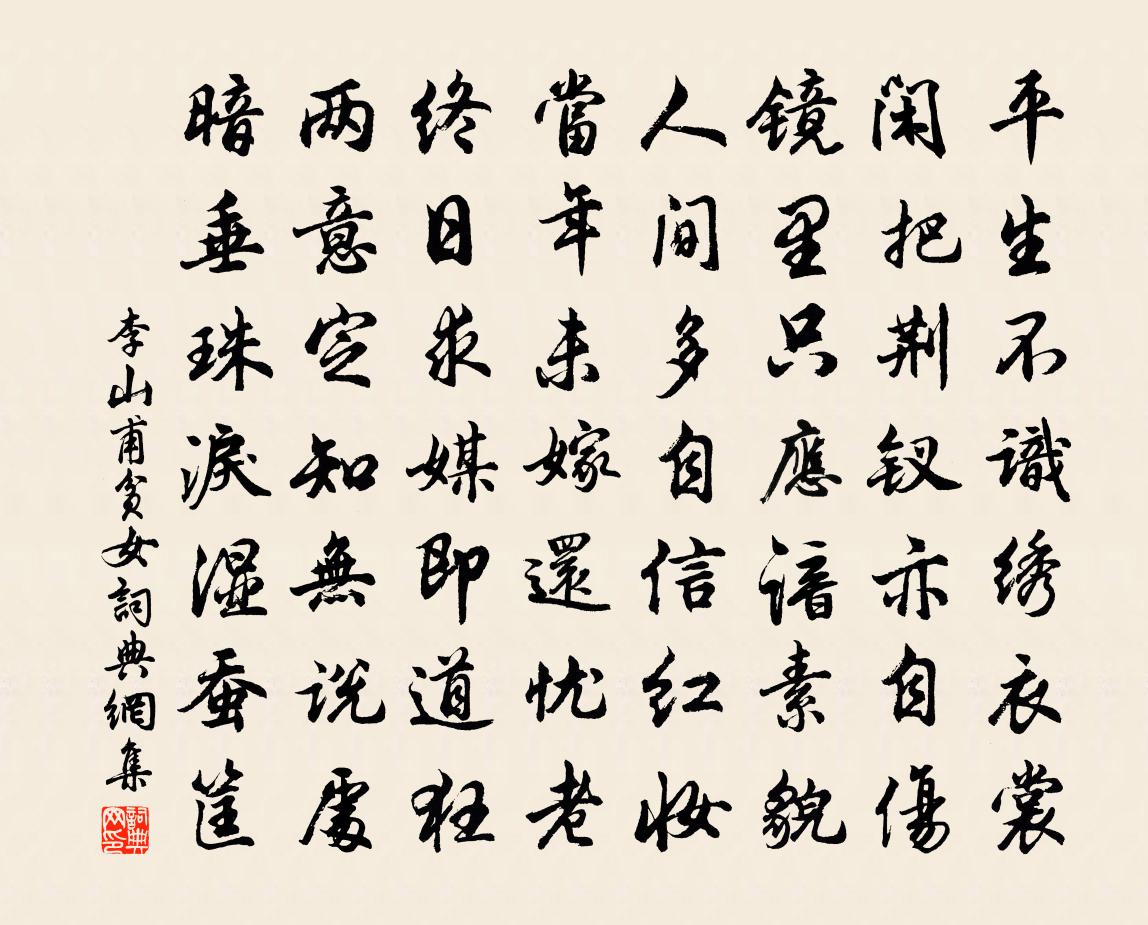 平生不識绣衣裳
闲把荆钗亦自傷
镜里只應谙素貌
人间多自信红妝
當年未嫁還忧老
终日求媒即道狂
两意定知無说處
暗垂珠淚湿蚕筐
李山甫貧女詞典網集
詞典网印